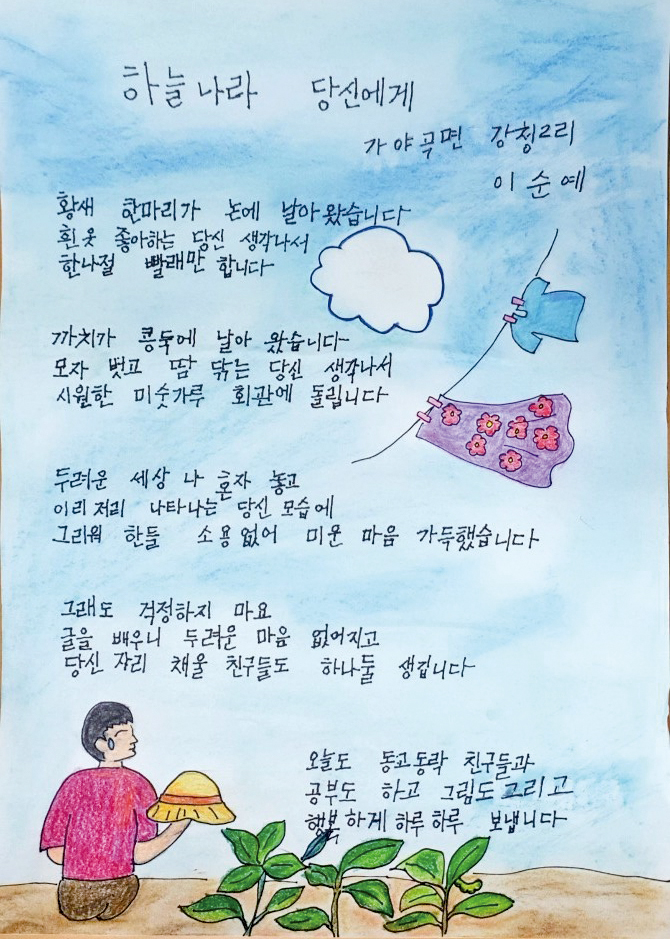 하늘나라 당신에게
가야곡면 강청2리
이순예
황새 한마리가 논에 날아왔습니다
흰옷 좋아하는 당신 생각나서
한나절 빨래만 합니다
까치가 콩둑에 날아 왔습니다
모자 벗고 땀 닦는 당신 생각나서
시원한 미숫가루 회관에 돌립니다
두려운 세상 나 혼자 놓고
이리저리 나타나는 당신 모습에
그리워 한들 소용없어 미운 마음 가득했습니다
그래도 걱정하지 마요
글을 배우니 두려운 마음 없어지고
당신 자리 채울 친구들도 하나둘 생깁니다
오늘도 동고동락 친구들과
공부도 하고 그림도 그리고
행복하게 하루하루 보냅니다